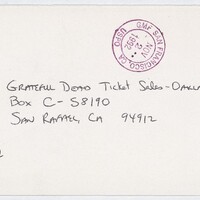 USPO GMF SAN FRANCISCO, CA
NOV 2 1992
GRATEFUL DEAD TICKET SALES-OAKLA
BOX C-S8190
SAN RAFAEL, CA 94912